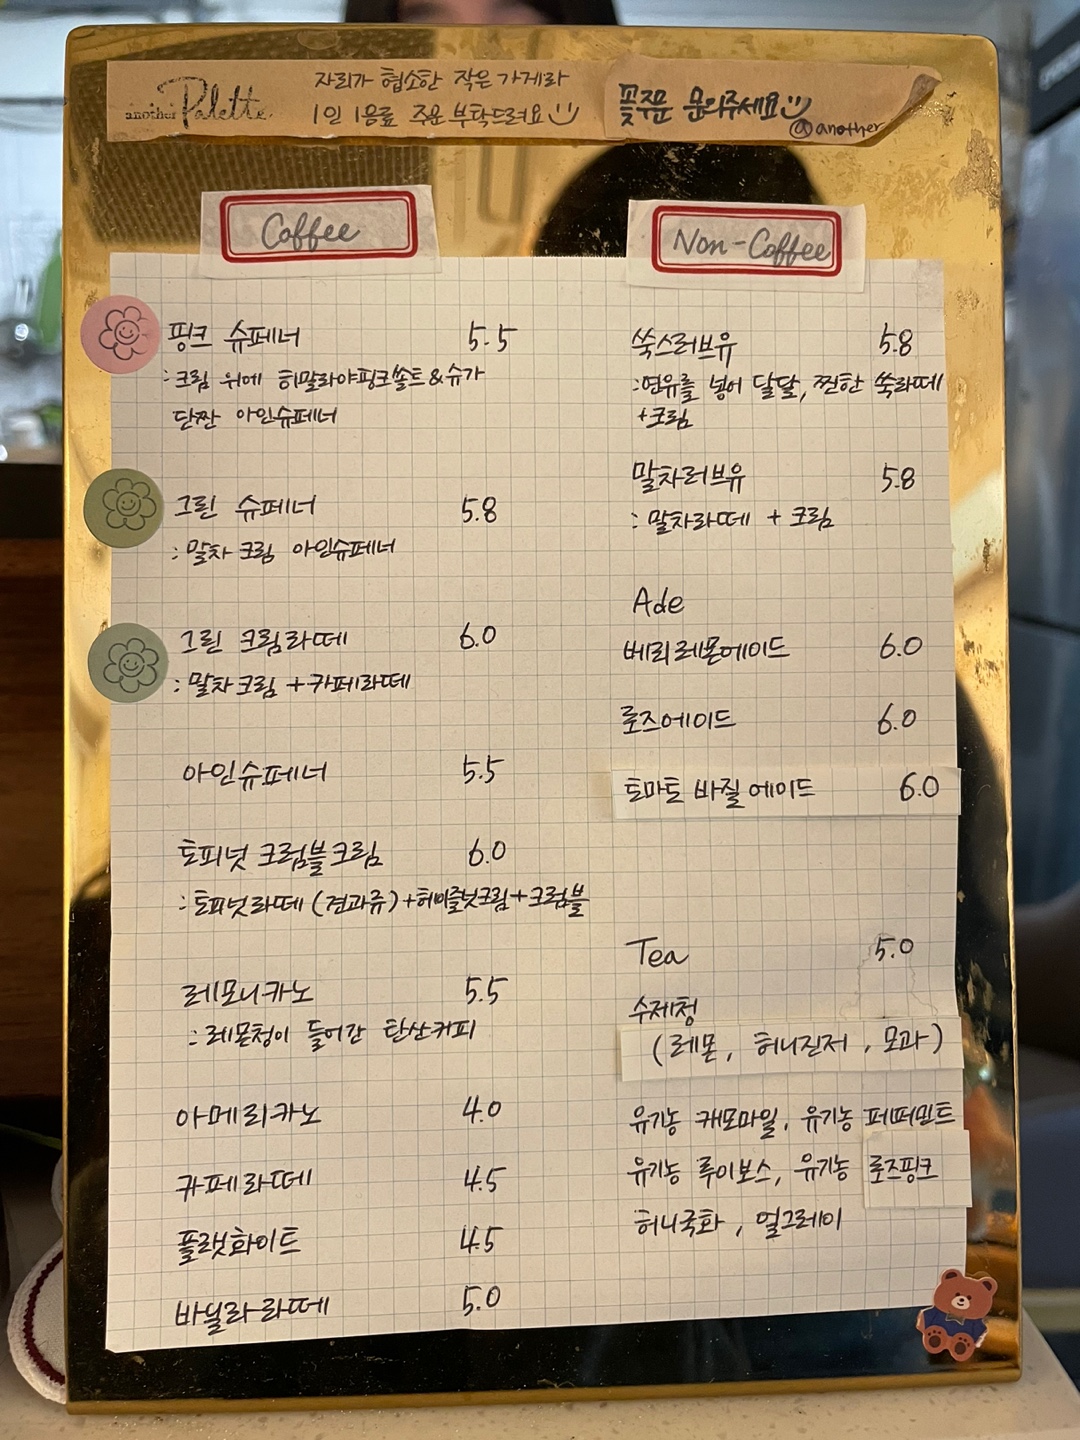 another Palette
자리가 협소한 작은 가게라
1인 1음료 주문 부탁드려요
꽃주문 문의주세요
@another
Coffee
핑크 슈페너 5.5
:크림 위에 히말라야핑크쏠트&슈가
단짠 아인슈페너
그린 슈페너 5.8
:말차 크림 아인슈페너
그린 크림라떼 6.0
:말차크림 +카페라떼
아인슈페너 5.5
토피넛 크럼블크림 6.0
:토피넛라떼 (견과류)+헤이즐넛크림+크럼블
레모니카노 5.5
:레몬청이 들어간 탄산커피
아메리카노 4.0
카페라떼 4.5
플랫화이트 4.5
바닐라라떼 5.0
Non-Coffee
쑥스러브유 5.8
:연유를 넣어 달달, 찐한 쑥라떼
+크림
말차러브유 5.8
: 말차라떼 + 크림
Ade
베리레몬에이드 6.0
로즈에이드 6.0
토마토 바질에이드 6.0
Tea 5.0
수제청
(레몬, 허니진저, 모과)
유기농 캐모마일, 유기농 페퍼민트
유기농 루이보스, 유기농 로즈핑크
허니국화, 얼그레이